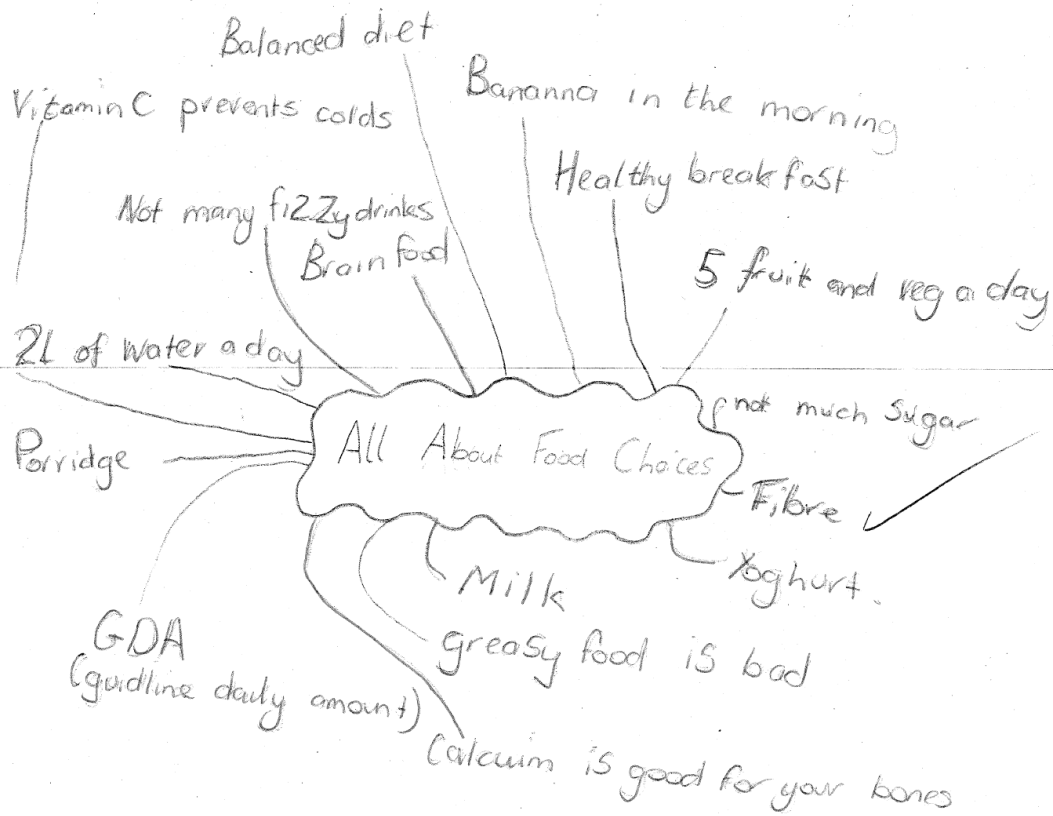 Balanced diet
Vitamin C prevents colds
Bananna in the morning
Healthy breakfast
Not many fizzy drinks
Brain food
5 fruit and veg a day
2L of water a day
not much sugar
All About Food Choices
Porridge
Fibre
Yoghurt.
Milk
GDA
(guidline daily amount)
greasy food is bad
Calcuim is good for your bones